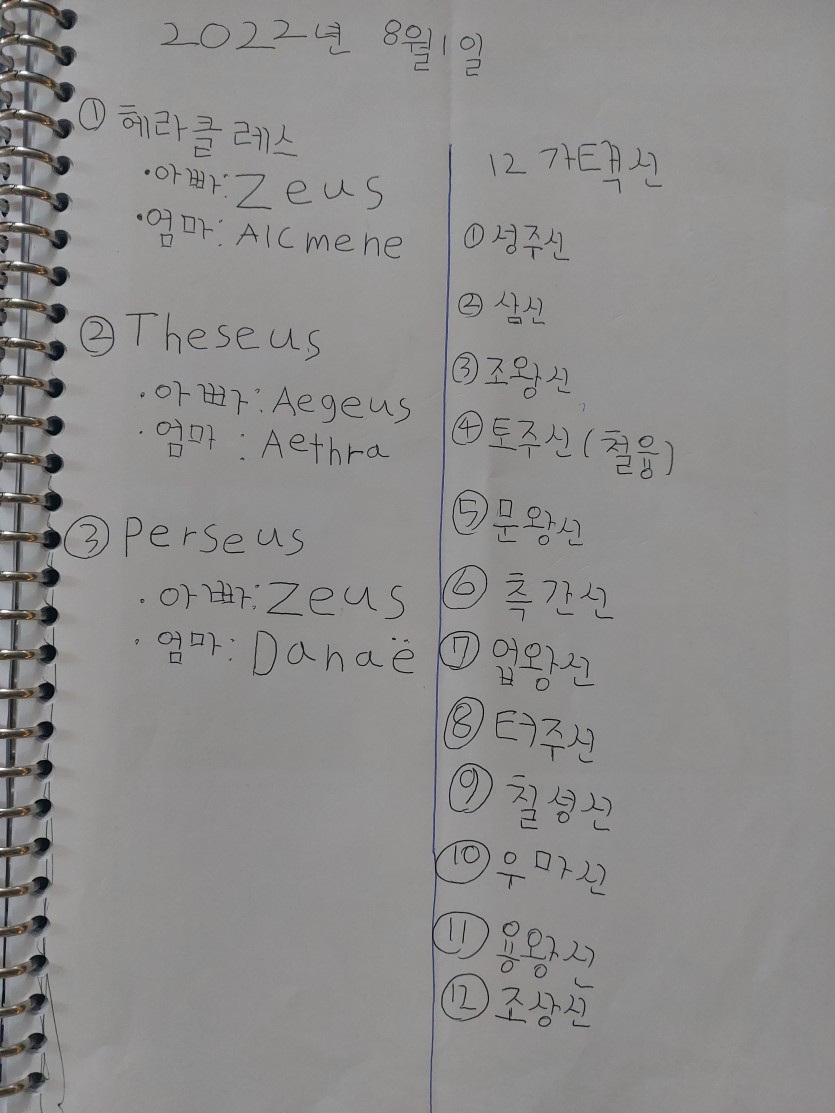 2022년 8월 1일
① 헤라클레스
·아빠: Zeus
·엄마: Alcmene
② Theseus
·아빠: Aegeus
·엄마: Aethra
③ Perseus
·아빠: Zeus
·엄마: Danaë
12 가택신
① 성주신
② 삼신
③ 조왕신
④ 토주신 (철융)
⑤ 문왕신
⑥ 측간신
⑦ 업왕신
⑧ 터주신
⑨ 칠성신
⑩ 우마신
⑪ 용왕신
⑫ 조상신